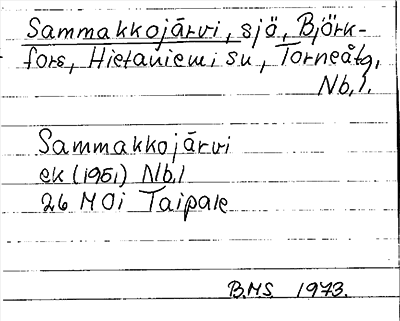 Sammakkojärvi, sjö, Björk-
fors, Hietaniemi sn, Torneåtg,
Nb, l.
Sammakkojärvi
ek (1951) Nb, l
26 M 0i Taipale
B.M.S. 1973.